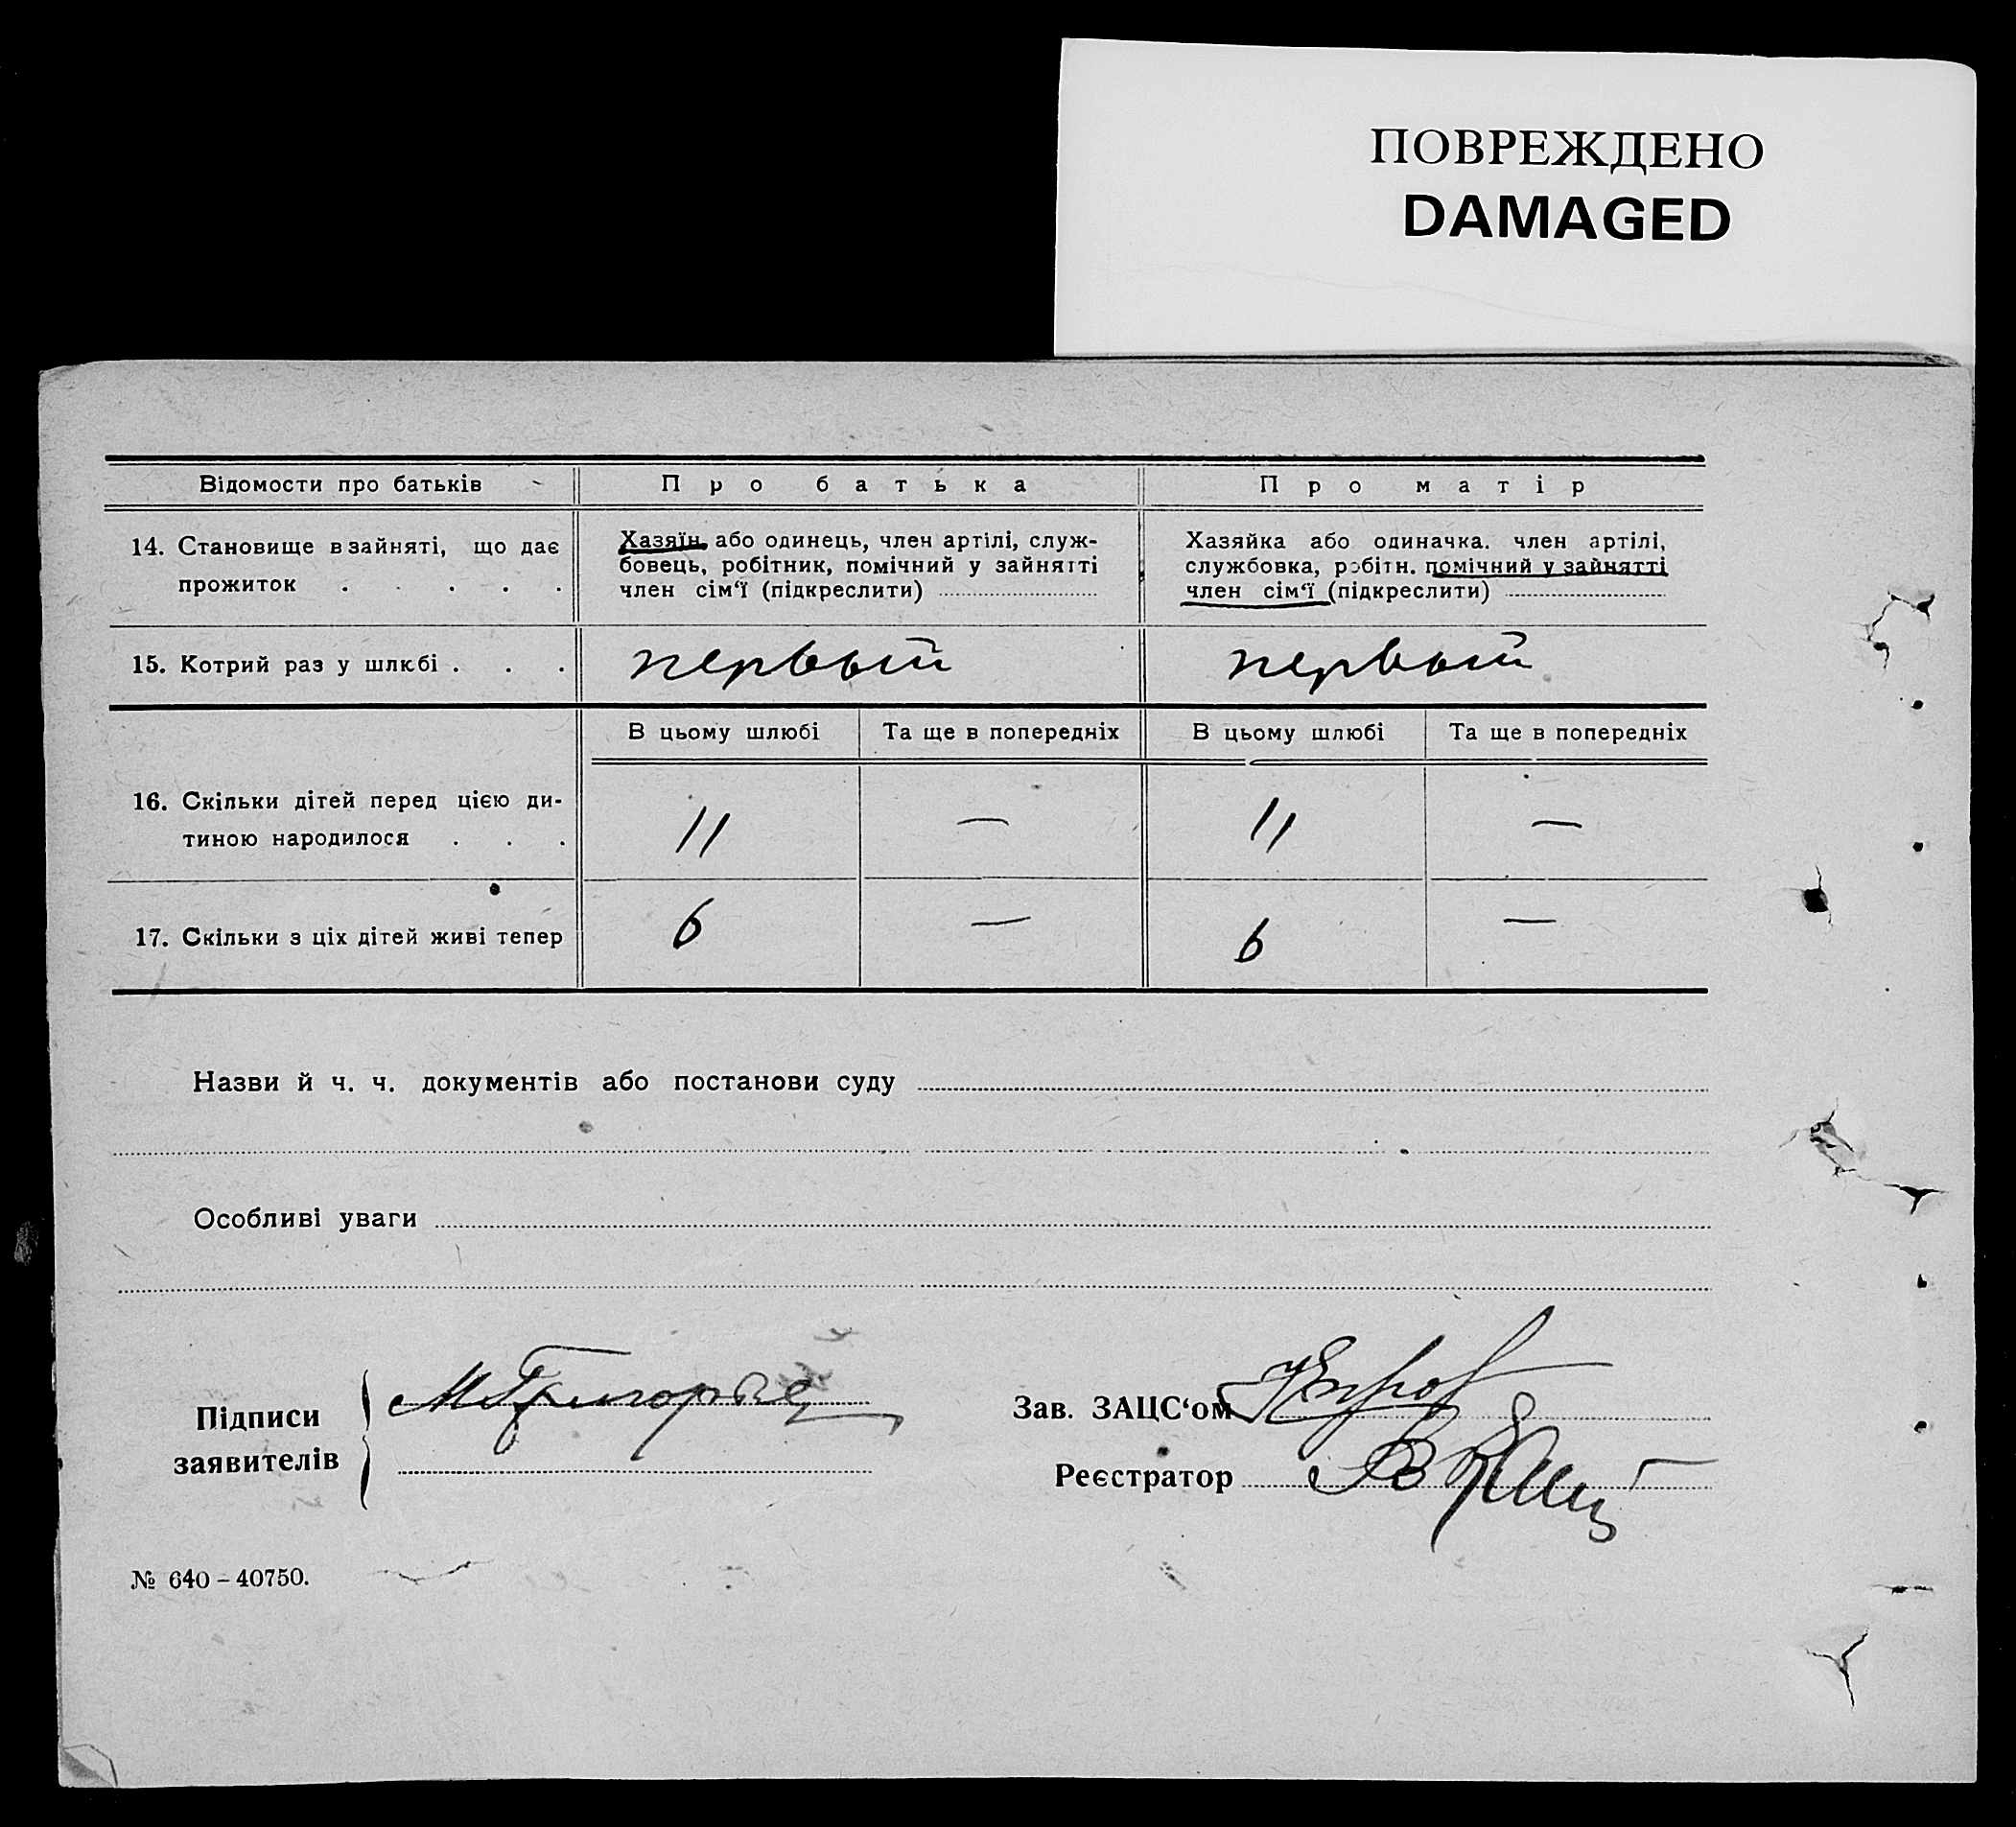 ПОВРЕЖДЕНО
DAMAGED
Відомости про батьків
Про батька
Про матір
14. Становище в зайняті, що дає
прожиток . . . . .
Хазяїн або одинець, член артілі, служ-
бовець, робітник, помічний у зайнятті
член сім‘ї (підкреслити)
Хазяйка або одиначка. член артілі,
службовка, робітн. помічний у зайнятті
член сім‘ї (підкреслити)
15. Котрий раз у шлюбі . . .
первый
первый
В цьому шлюбі
Та ще в попередніх
В цьому шлюбі
Та ще в попередніх
16. Скільки дітей перед цією ди-
тиною народилося . . .
11
—
11
—
17. Скільки з ціх дітей живі тепер
6
—
6
—
Назви й ч. ч. документів або постанови суду
Особливі уваги
Підписи
заявителів
Зав. ЗАЦС‘ом
Реєстратор
№ 640 – 40750.